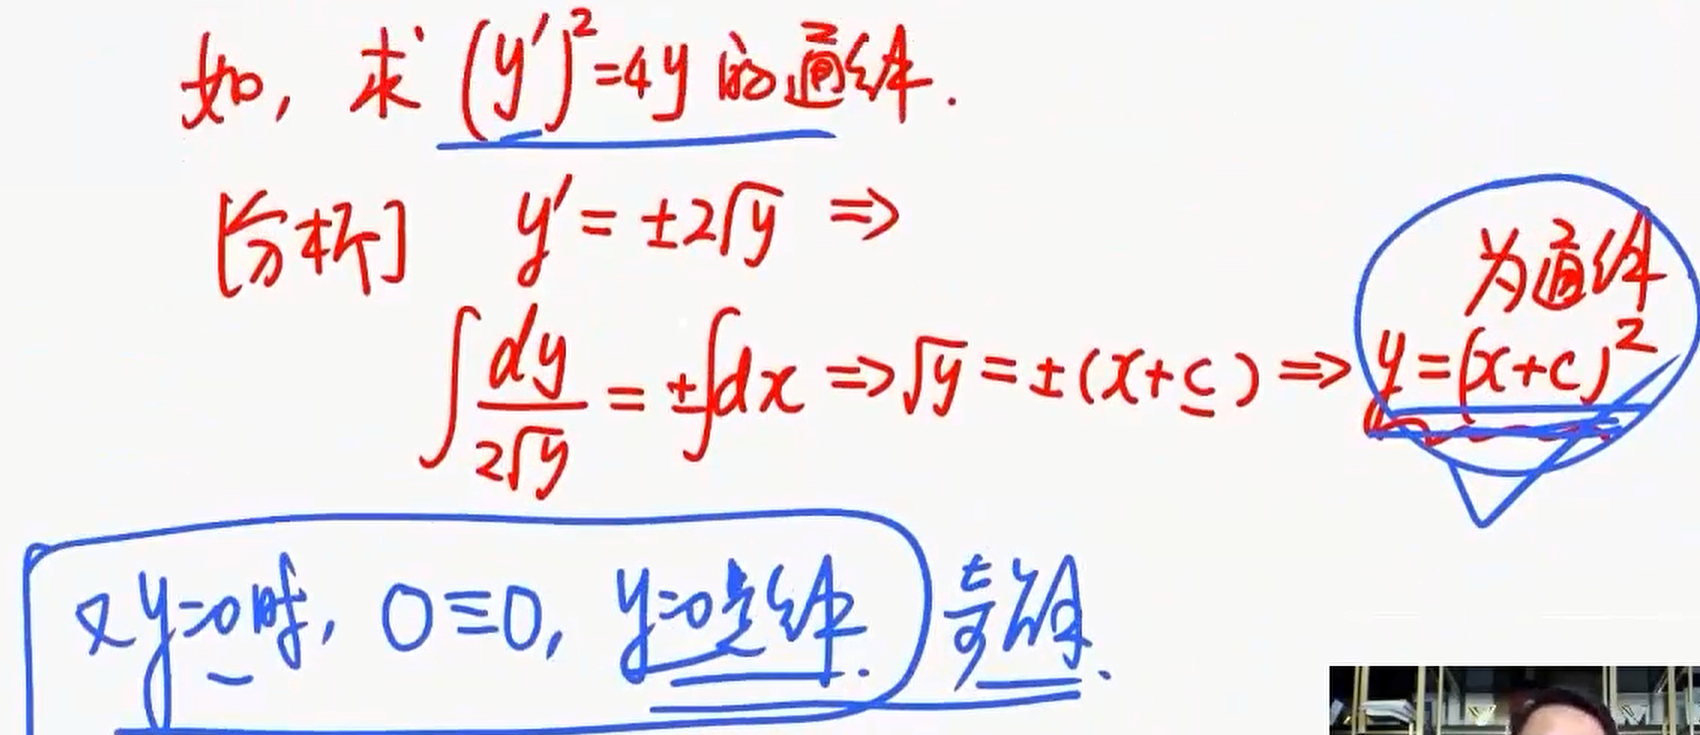 如, 求 (y')²=4y 的通解.
[分析] y' = ±2√y ⇒
∫ dy/(2√y) = ±∫dx ⇒ √y = ±(x+c) ⇒ y=(x+c)²
为通解
又y=0时, 0≡0, y=0是解. 奇解.